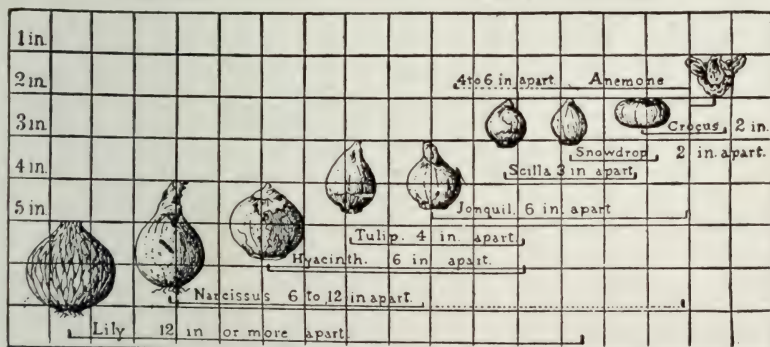 1 in.
2 in.
3 in.
4 in.
5 in.
4 to 6 in apart. Anemone
Crocus 2 in.
Snowdrop 2 in. apart.
Scilla 3 in apart
Jonquil. 6 in apart
Tulip. 4 in. apart.
Hyacinth. 6 in apart.
Narcissus 6 to 12 in apart.
Lily 12 in or more apart.